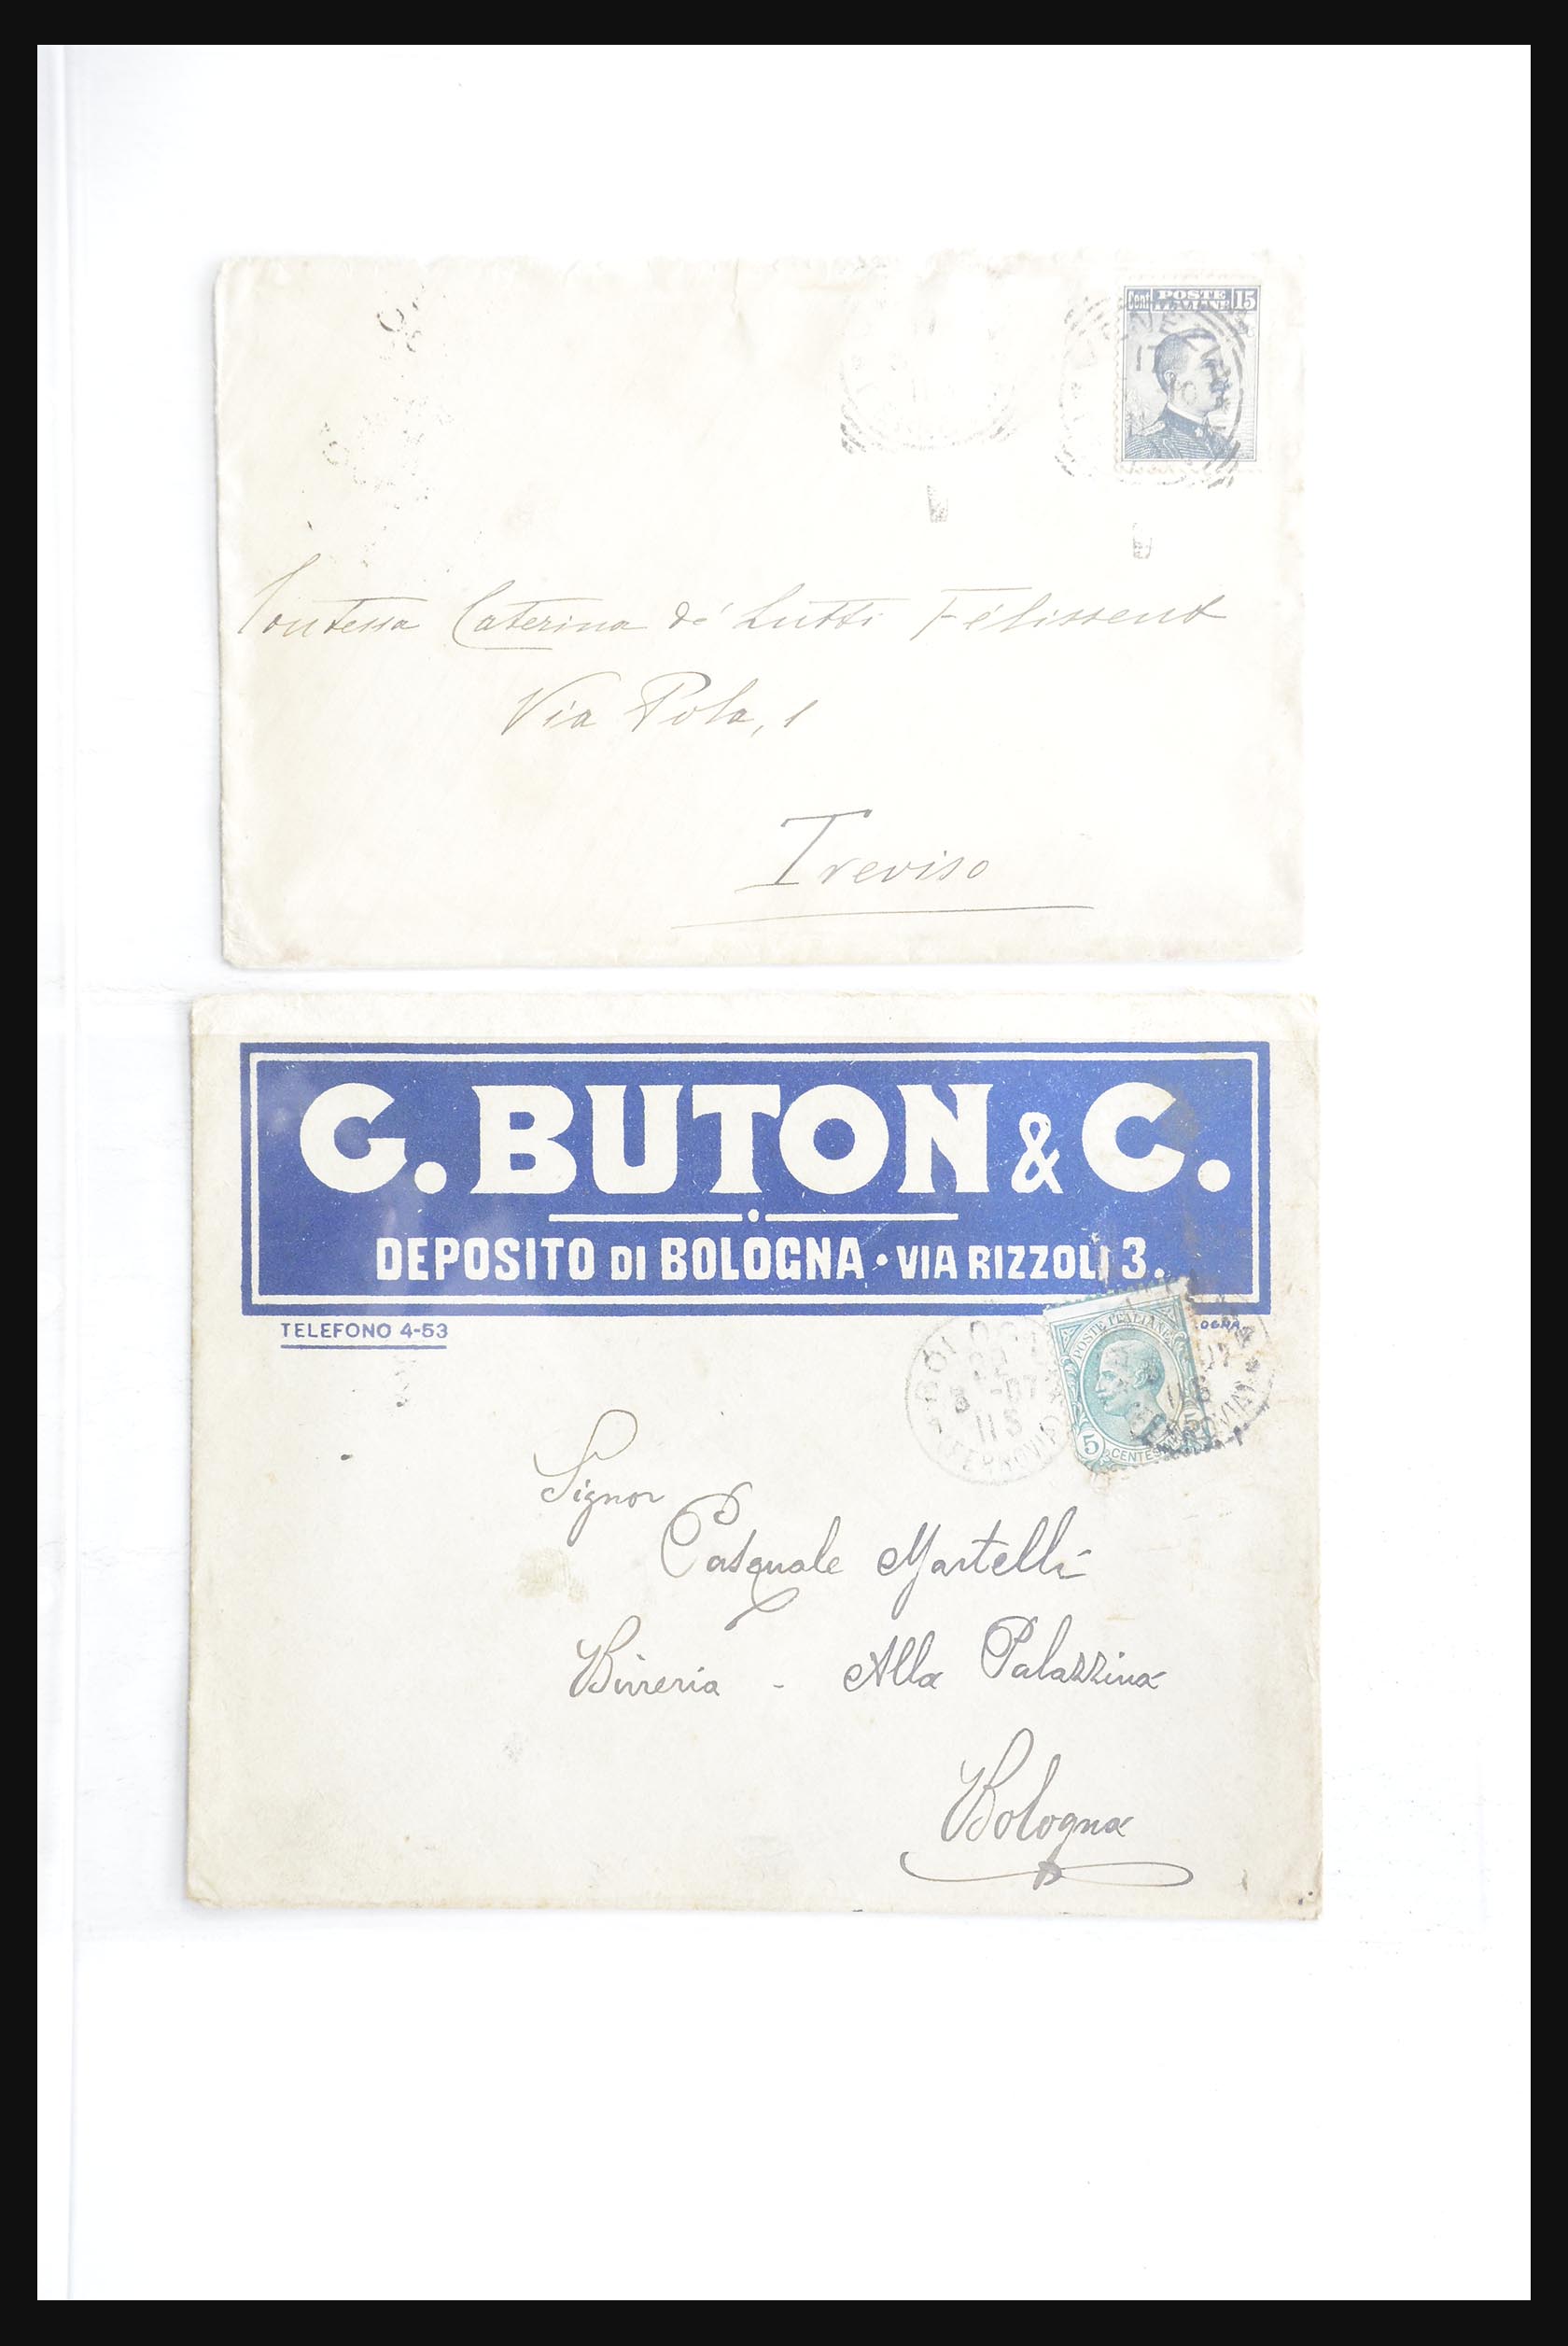 Cent POSTE ITALIANE 15
Contessa Caterina de' Lutti Félissent
Via Pola, 1
Treviso
G. BUTON & C.
DEPOSITO DI BOLOGNA • VIA RIZZOLI 3.
TELEFONO 4-53
POSTE ITALIANE
5
Signor
Pasquale Martelli
Birreria - Alla Palazzina
Bologna